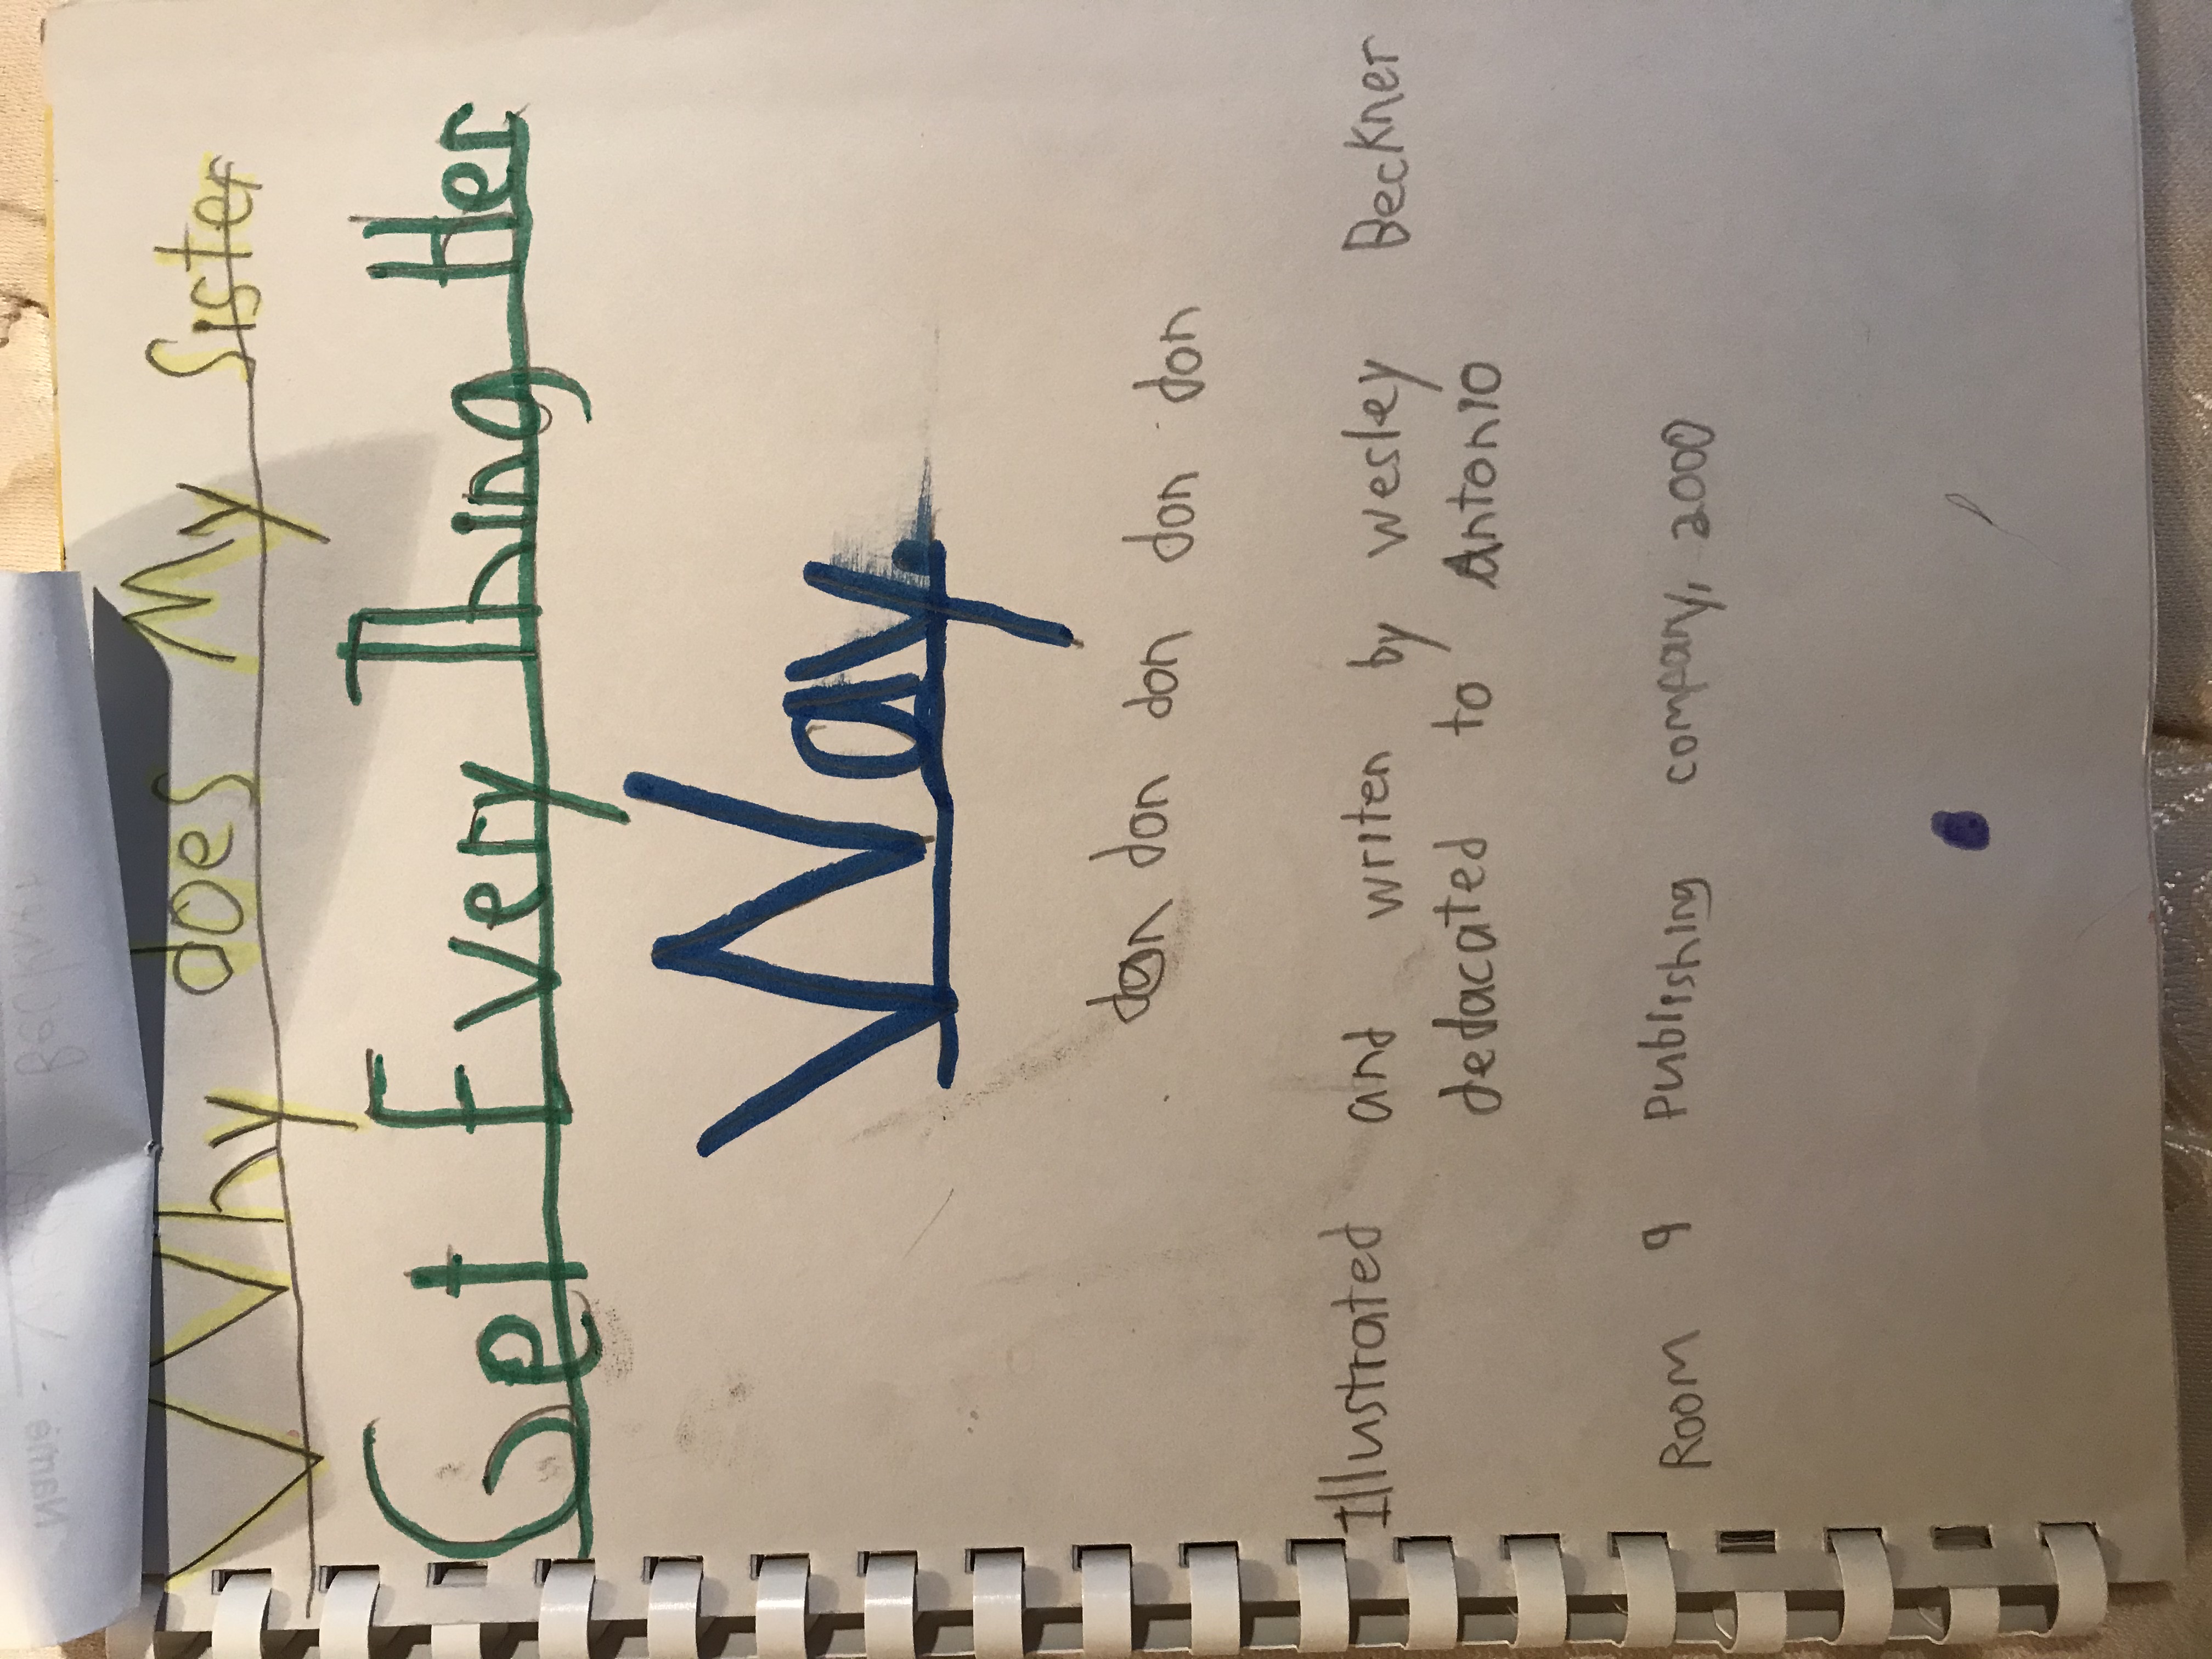 Name
Beckner
Why does My Sister
Get Every Thing Her
Way.
don don don don don
Illustrated and writen by Wesley Beckner
dedacated to Antonio
Room 9 Publishing company, 2000